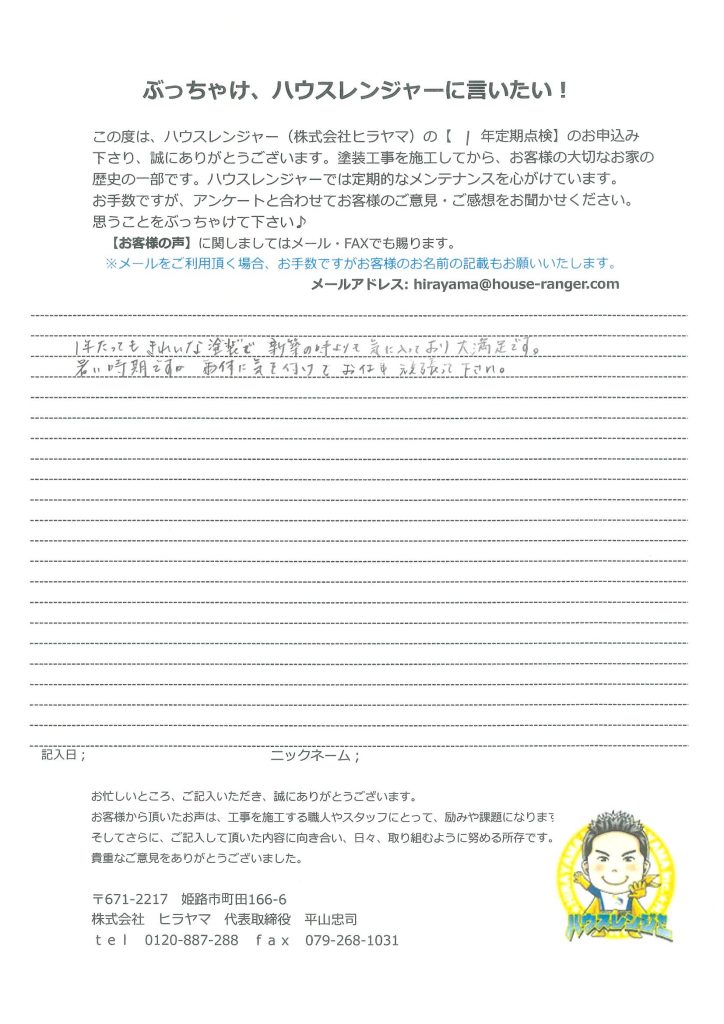 ぶっちゃけ、ハウスレンジャーに言いたい！
この度は、ハウスレンジャー（株式会社ヒラヤマ）の【 1 年定期点検】のお申込み
下さり、誠にありがとうございます。塗装工事を施工してから、お客様の大切なお家の
歴史の一部です。ハウスレンジャーでは定期的なメンテナンスを心がけています。
お手数ですが、アンケートと合わせてお客様のご意見・ご感想をお聞かせください。
思うことをぶっちゃけて下さい♪
【お客様の声】に関しましてはメール・FAXでも賜ります。
※メールをご利用頂く場合、お手数ですがお客様のお名前の記載もお願いいたします。
メールアドレス: hirayama@house-ranger.com
1年たっても きれいな塗装で 新築の時よりも 気に入っており 大満足です。
暑い時期ですが お体に気を付けて お仕事 頑張って下さい。
記入日；
ニックネーム；
お忙しいところ、ご記入いただき、誠にありがとうございます。
お客様から頂いたお声は、工事を施工する職人やスタッフにとって、励みや課題になります
そしてさらに、ご記入して頂いた内容に向き合い、日々、取り組むように努める所存です。
貴重なご意見をありがとうございました。
ハウスレンジャー
〒671-2217　姫路市町田166-6
株式会社　ヒラヤマ　代表取締役　平山忠司
ｔｅｌ　0120-887-288　ｆａｘ　079-268-1031